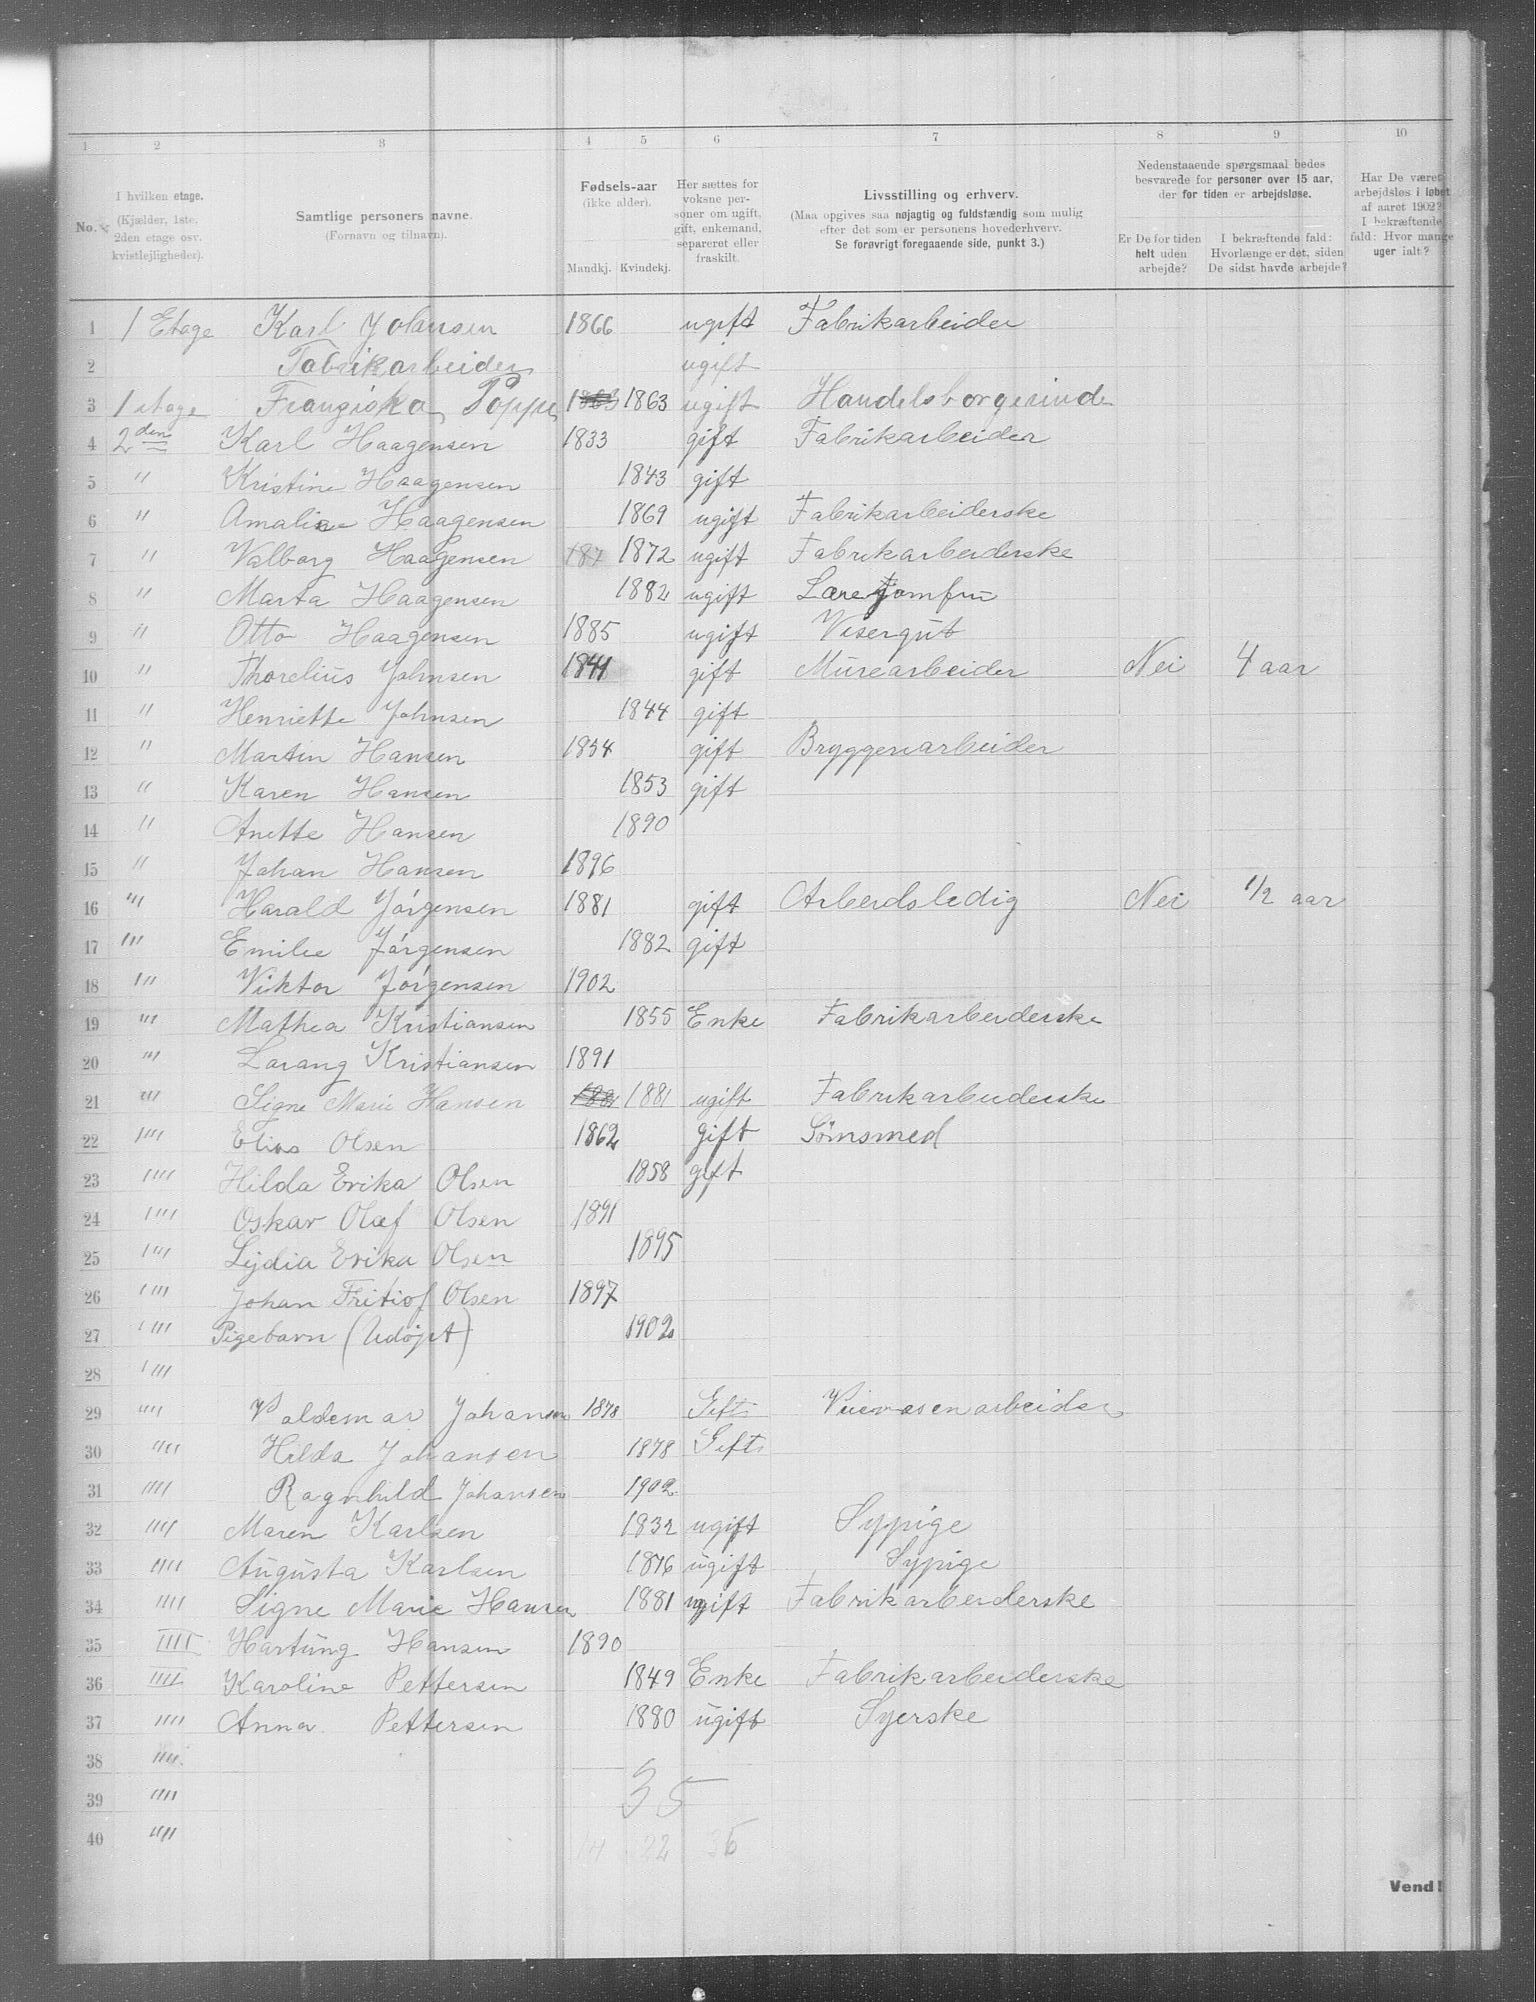 1 2 3 4 5 6 7 8 9 10
No. I hvilken etage. (Kjælder, 1ste, 2den etage osv. kvistlejligheder).
Samtlige personers navne. (Fornavn og tilnavn).
Fødsels-aar (ikke alder). Mandkj. Kvindekj.
Her sættes for voksne personer om ugift, gift, enkemand, separeret eller fraskilt.
Livsstilling og erhverv. (Maa opgives saa nøjagtig og fuldstændig som mulig efter det som er personens hovederhverv. Se forøvrigt foregaaende side, punkt 3.)
Nedenstaaende spørgsmaal bedes besvarede for personer over 15 aar, der for tiden er arbejdsløse.
Er De for tiden helt uden arbejde?
I bekræftende fald: Hvorlænge er det, siden De sidst havde arbejde?
Har De været arbejdsløs i løbet af aaret 1902? I bekræftende fald: Hvor mange uger ialt?
1 1 Etage Karl Johansen 1866 ugift Fabrikarbeider
2 Fabrikarbeider ugift
3 1 etage Frangiska Poppe 1863 1863 ugift Handelsborgerinde
4 2den Karl Haagensen 1833 gift Fabrikarbeider
5 " Kristine Haagensen 1843 gift
6 " Amalie Haagensen 1869 ugift Fabrikarbeiderske
7 " Valborg Haagensen 187 1872 ugift Fabrikarbeiderske
8 " Marta Haagensen 1882 ugift Lærejomfru
9 " Otto Haagensen 1885 ugift Visergut
10 " Thorelius Johnsen 1841 gift Murearbeider Nei 4 aar
11 " Henriette Johnsen 1844 gift
12 " Martin Hansen 1854 gift Bryggeriarbeider
13 " Karen Hansen 1853 gift
14 " Anette Hansen 1890
15 " Johan Hansen 1896
16 "' Harald Jörgensen 1881 gift Arbeidsledig Nei 1/2 aar
17 "' Emilie Jörgensen 1882 gift
18 "' Viktor Jörgensen 1902
19 "' Mathea Kristiansen 1855 Enke Fabrikarbeiderske
20 "' Larang Kristiansen 1891
21 "' Signe Marie Hansen 1881 1881 ugift Fabrikarbeiderske
22 "" Elias Olsen 1862 gift Sömsmed
23 "" Hilda Erika Olsen 1858 gift
24 "" Oskar Olaf Olsen 1891
25 "" Lydia Erika Olsen 1895
26 "" Johan Fritiof Olsen 1897
27 "" Pigebarn (Udøpt) 1902
28 ""
29 "" Valdemar Johansen 1878 Gift Veievæsenarbeider
30 "" Hilda Johansen 1878 Gift
31 "" Ragnhild Johansen 1902
32 "" Maren Karlsen 1832 ugift Sypige
33 "" Augusta Karlsen 1876 ugift Sypige
34 "" Signe Marie Hansen 1881 ugift Fabrikarbeiderske
35 IIII Hartung Hansen 1890
36 "" Karoline Pettersen 1849 Enke Fabrikarbeiderske
37 "" Anna Pettersen 1880 ugift Syerske
38 ""
39 "" 35
40 "" 14 22 36
Vend!